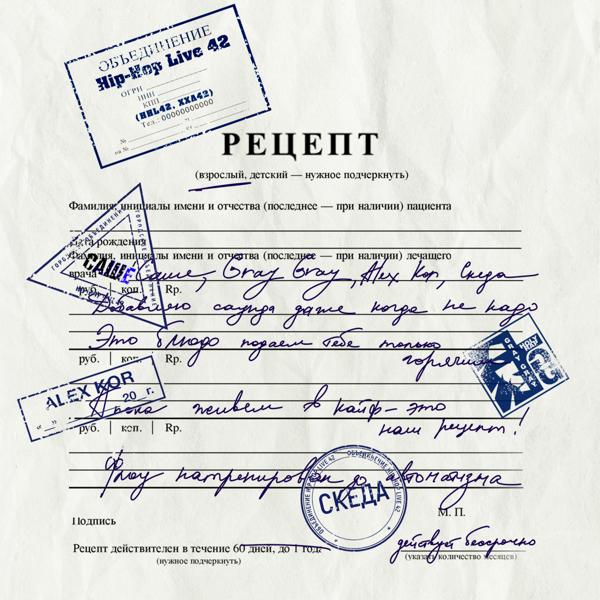 ОБЪЕДИНЕНИЕ
Hip-Hop Live 42
ОГРН
ИНН
КПП
(HHL42, XXA42)
Тел.: 00000000000
№
на №
РЕЦЕПТ
(взрослый, детский — нужное подчеркнуть)
Фамилия, инициалы имени и отчества (последнее — при наличии) пациента
Дата рождения
Фамилия, инициалы имени и отчества (последнее — при наличии) лечащего
врача Саше, Gray Gray, Alex Kor, Скеда
САШЕ
руб. коп. Rp.
Добавляю саунда даже когда не надо
Это блюдо подаем тебе только
горячим
руб. коп. Rp.
GRAY GRAY
ALEX KOR
20 г.
А пока живем в кайф – это
руб. коп. Rp.
наш рецепт!
Флоу натренирован до автоматизма
ОБЪЕДИНЕНИЕ HIP-HOP LIVE 42
СКЕДА
Подпись
М. П.
Рецепт действителен в течение 60 дней, до 1 года
действует бессрочно
(нужное подчеркнуть)
(указать количество месяцев)